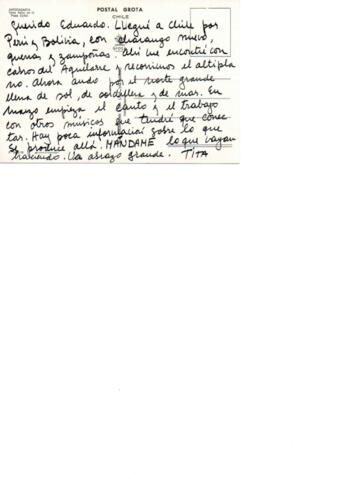 POSTAL GROTA
CHILE
Querido Eduardo. Llegué a Chile por
Perú y Bolivia, con charango nuevo,
quenas y zampoñas. Ahí me encontré con
cabros del Aquelarre y recorrimos el altipla
no. Ahora ando por el norte grande
llena de sol, de cordillera y de mar. En
marzo empieza el canto y el trabajo
con otros músicos que tendré que conec
tar. Hay poca información sobre lo que
se produce allá. MÁNDAME lo que vayan
haciendo. Un abrazo grande. TITA